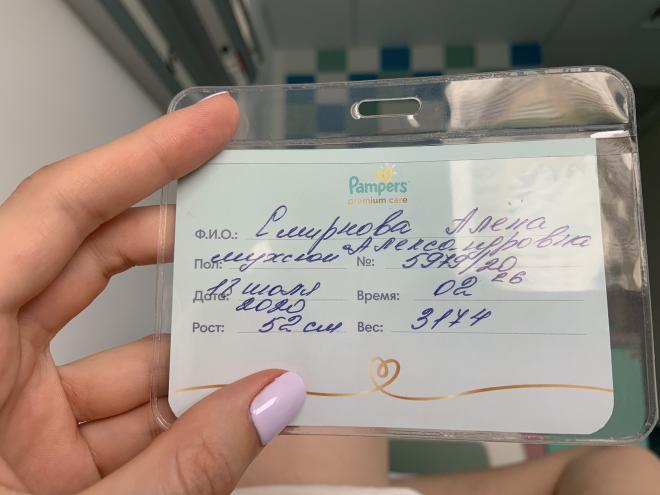 Pampers
premium care
Ф.И.О.: Смирнова Алена
Александровна
Пол: мужской №: 5979/20
Дата: 18 июля 2020 Время: 02 26
Рост: 52 см Вес: 3174